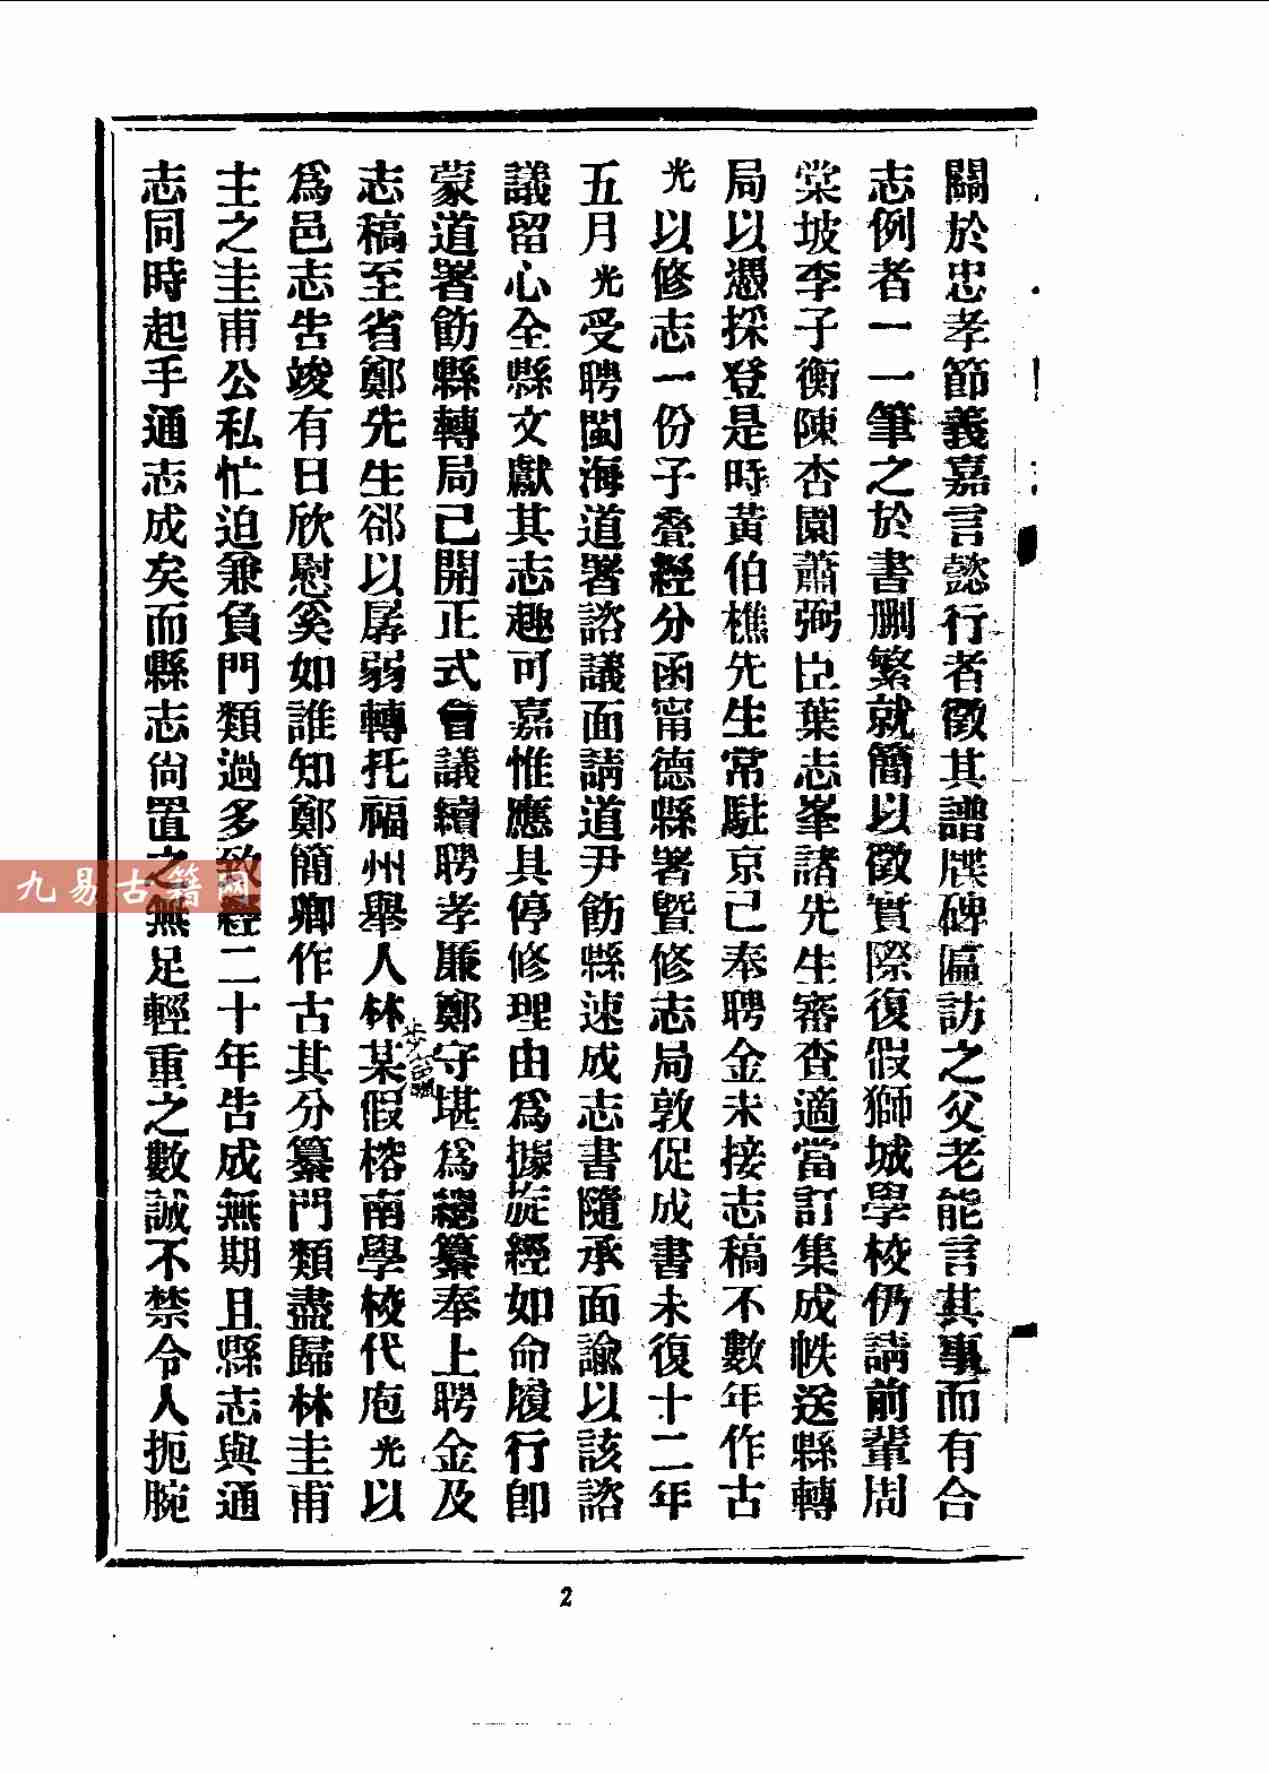 關於忠孝節義嘉言懿行者徵其譜牒碑匾訪之父老能言其事而有合
志例者一一筆之於書删繁就簡以徵實際復假獅城學校仍請前輩周
棠坡李子衡陳杏園蕭弼臣葉志峯諸先生審查適當訂集成帙送縣轉
局以憑採登是時黃伯樵先生常駐京己奉聘金未接志稿不數年作古
光以修志一份子叠經分函甯德縣署暨修志局敦促成書未復十二年
五月光受聘閩海道署諮議面請道尹飭縣速成志書隨承面諭以該諮
議留心全縣文獻其志趣可嘉惟應具停修理由爲據旋經如命履行卽
蒙道署飭縣轉局己開正式會議續聘孝廉鄭守堪爲總纂奉上聘金及
志稿至省鄭先生郤以孱弱轉托福州舉人林某假榕南學校代庖光以
步
爲邑志告竣有日欣慰奚如誰知鄭簡卿作古其分纂門類盡歸林圭甫
主之圭甫公私忙迫兼負門類過多致經二十年告成無期且縣志與通
志同時起手通志成矣而縣志尙置之無足輕重之數誠不禁令人扼腕
2
九易古籍网